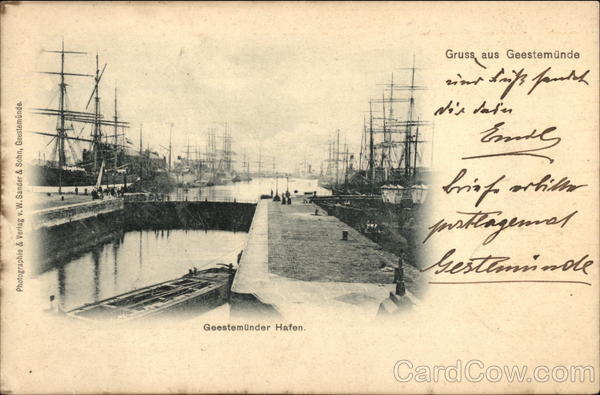 Gruss aus Geestemünde
und Kuß sendet
dir dein
Emil
Briefe erbitte
postlagernd
Geestemünde
Photographie & Verlag v. W. Sander & Sohn, Geestemünde.
Geestemünder Hafen.
CardCow.com